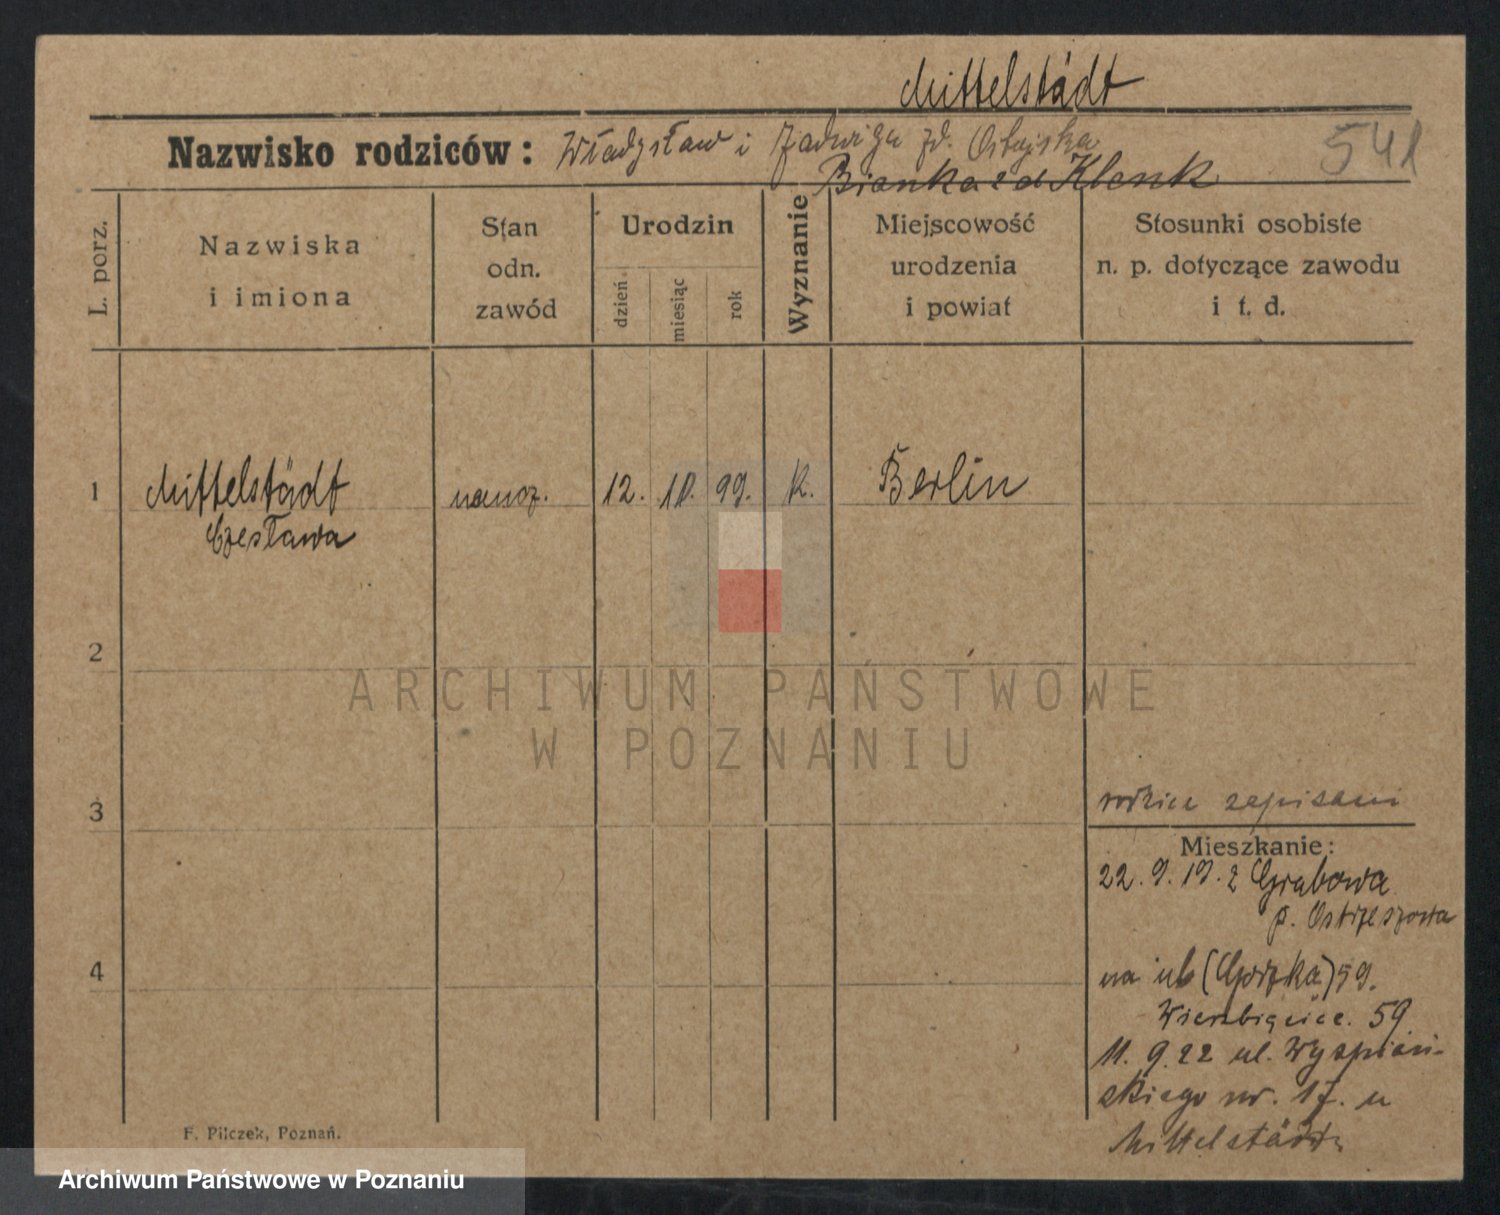 Mittelstädt
Nazwisko rodziców: Władysław i Jadwiga zd. Ostajska
541
Bianka zd Klenk
L. porz.
Nazwiska
i imiona
Stan
odn.
zawód
Urodzin
dzień
miesiąc
rok
Wyznanie
Miejscowość
urodzenia
i powiat
Stosunki osobiste
n. p. dotyczące zawodu
i t. d.
1 Mittelstädt naucz. 12. 10. 99. k. Berlin
Czesława
2
ARCHIWUM PAŃSTWOWE
W POZNANIU
3
rodzice zapisani
Mieszkanie:
22. 9. 19. z Grabowa
p. Ostrzeszowa
4
na ul (Górzka) 59.
Wierzbięcice. 59
11. 9. 22 ul. Wyspiań-
skiego nr. 17. u
Mittelstädt
F. Pilczek, Poznań.
Archiwum Państwowe w Poznaniu